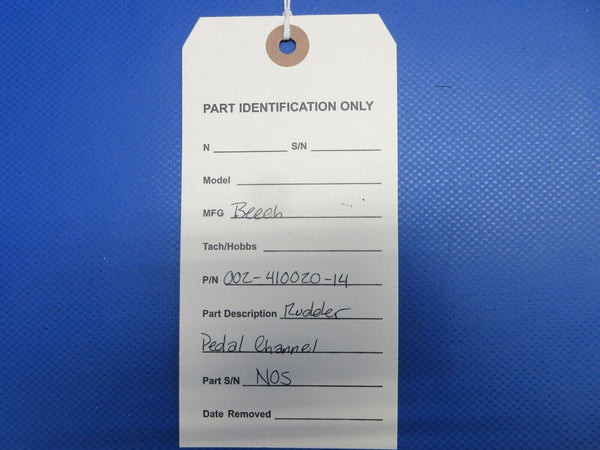 PART IDENTIFICATION ONLY
N S/N
Model
MFG Beech
Tach/Hobbs
P/N 002-410020-14
Part Description Rudder
Pedal Channel
Part S/N NOS
Date Removed